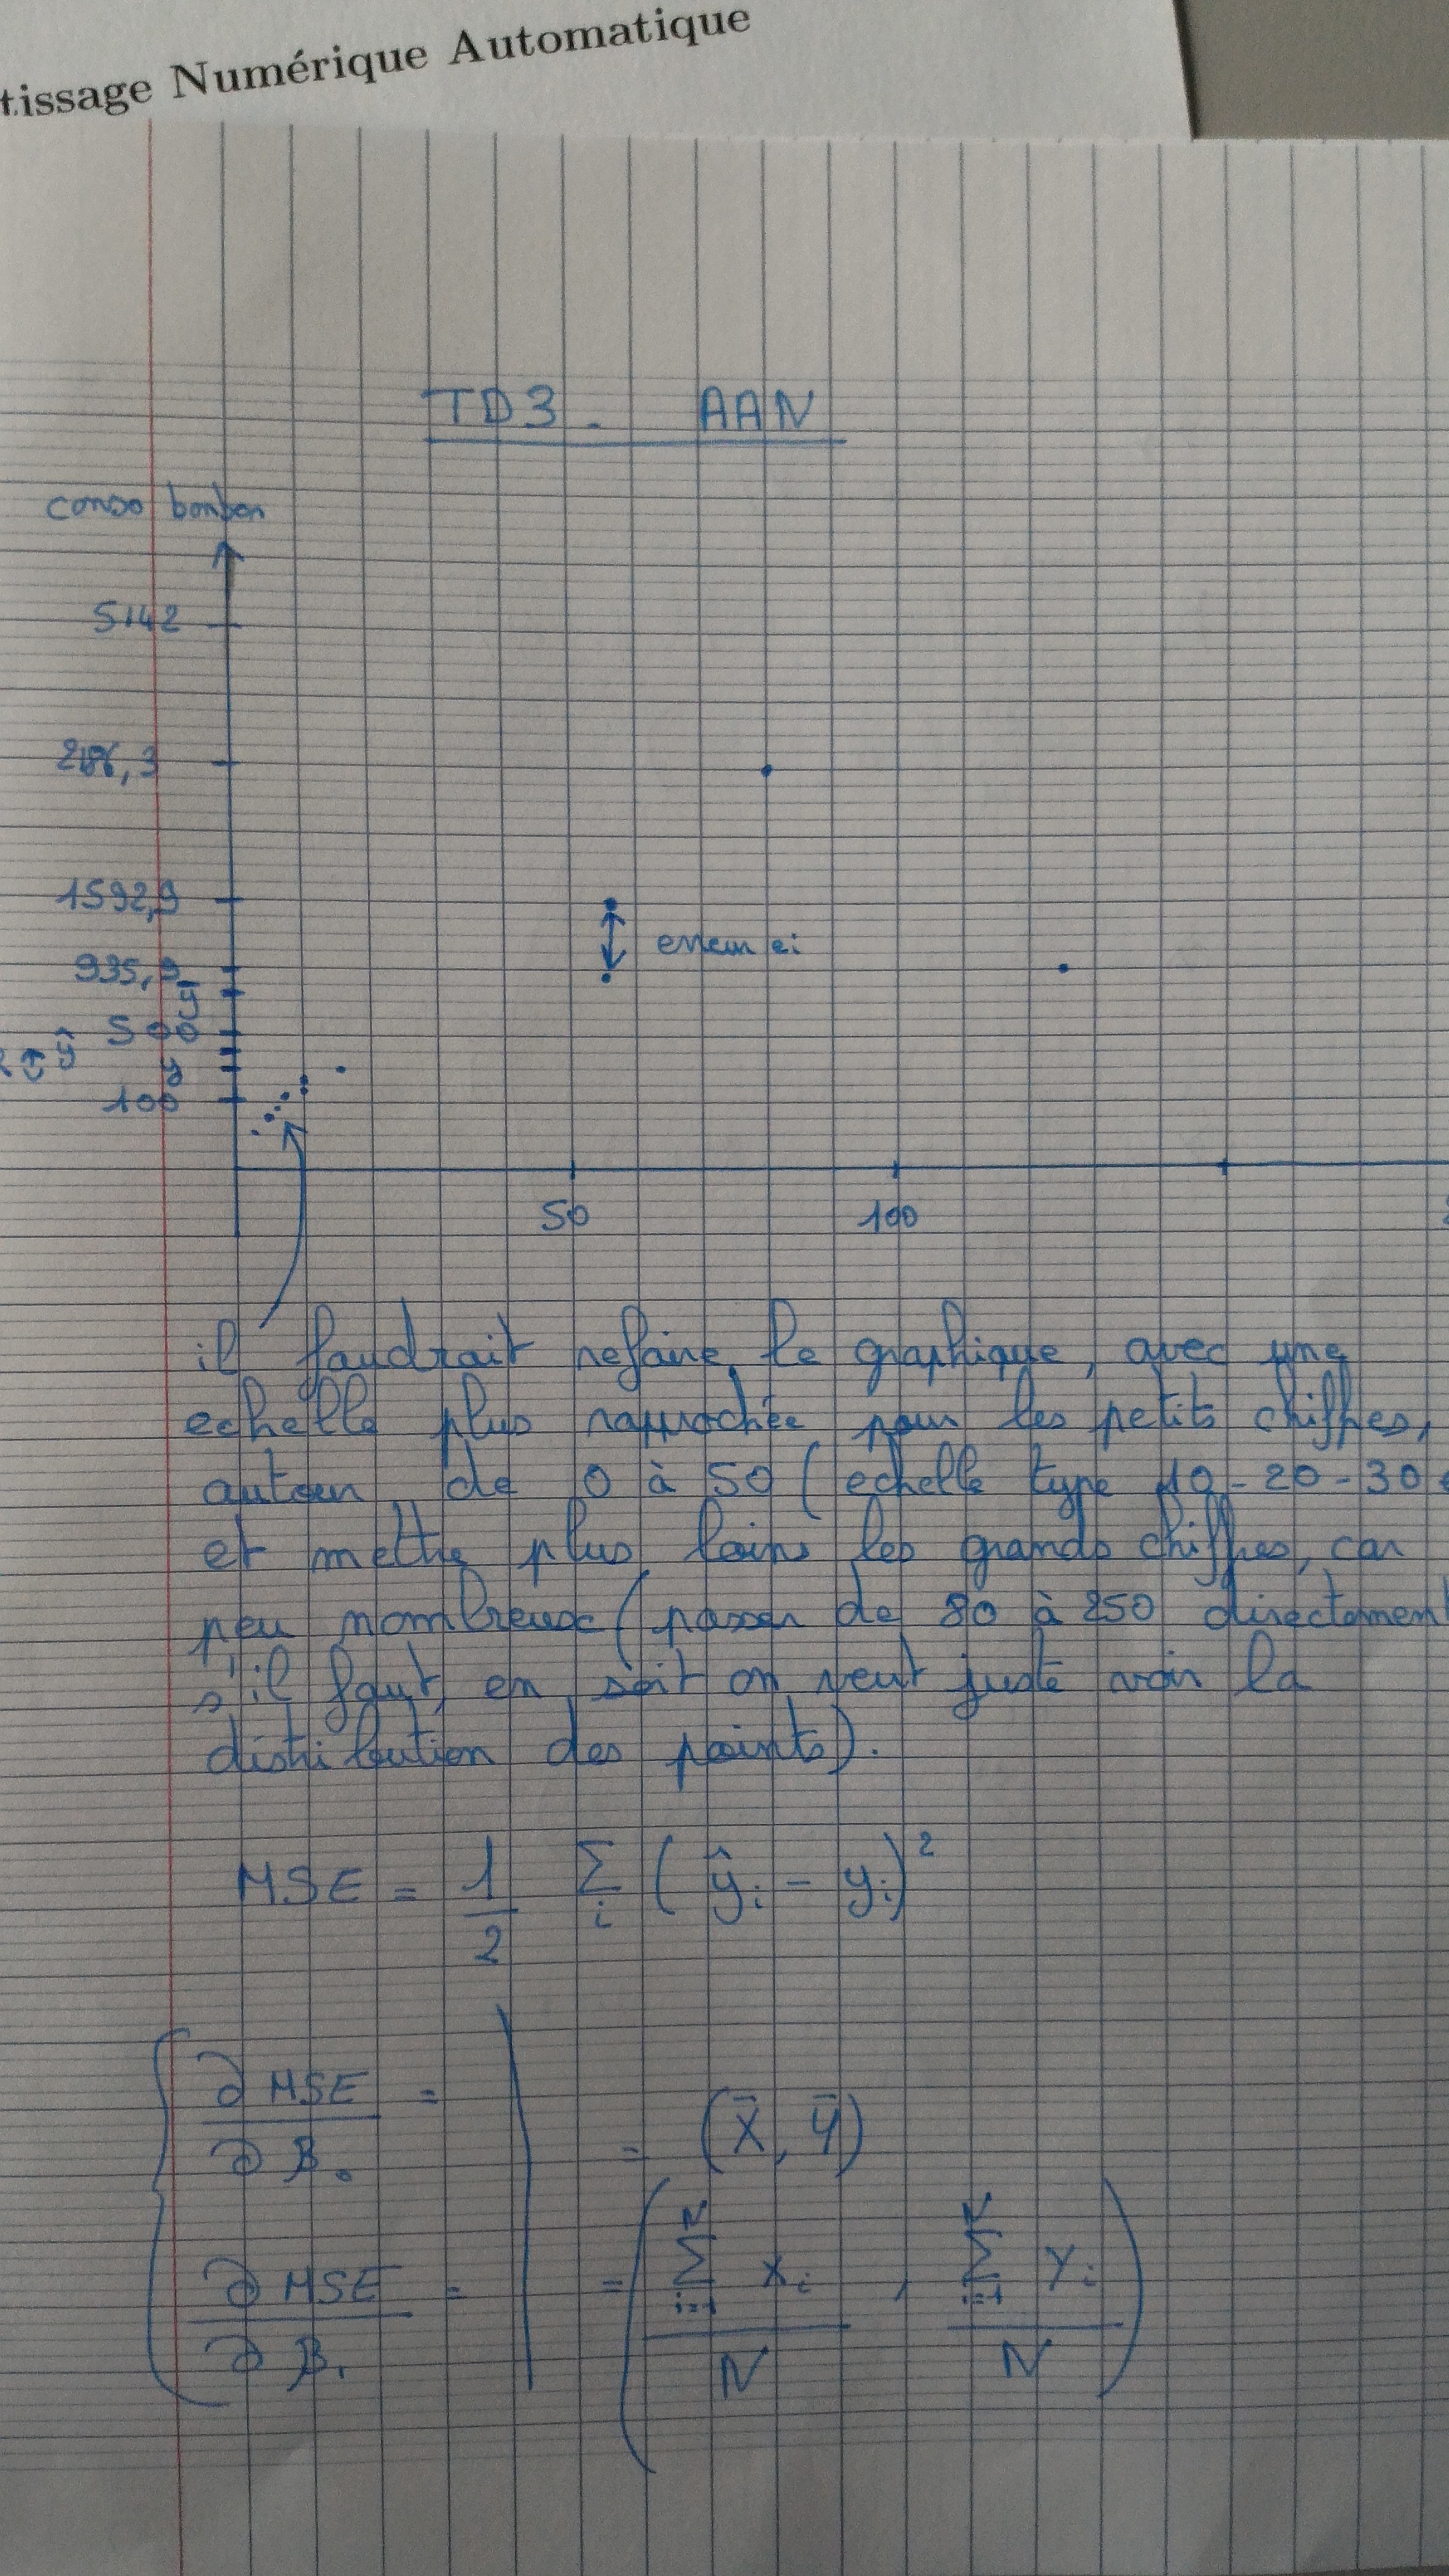 tissage Numérique Automatique
TD3. AAN
conso bonbon
5142
1592,9
erreur ei
935,9
ȳ
500
ŷ
y
100
50 100
il faudrait refaire le graphique, avec une
echelle plus rapprochée pour les petits chiffres,
autour de 0 à 50 (echelle type 10-20-30
et mettre plus loins les grands chiffres, car
peu nombreux (passer de 80 à 250 directement
s'il faut, en soit on veut juste voir la
distribution des points).
MSE = 1/2 Σ i (ŷi - yi)²
∂ MSE / ∂ B₀ = = (X̄, ȳ)
∂ MSE / ∂ B₁ = = (Σ i=1 N xi / N , Σ i=1 N yi / N)